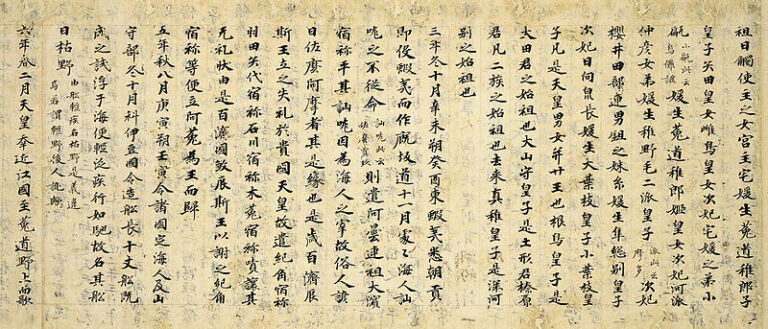 祖日觸使主之女宮主宅媛生菟道稚郎子
皇子矢田皇女雌鳥皇女次妃宅媛之弟小
甂小甂此云烏儺謎媛生菟道稚郎姬皇女次妃河派
仲彥女弟媛生稚野毛二派皇子派此云摩多次妃
櫻井田部連男鉏之妹糸媛生隼總別皇子
次妃日向泉長媛生大葉枝皇子小葉枝皇
子凡是天皇男女并廿王也根鳥皇子是
大田君之始祖也大山守皇子是土形君榛原
君凡二族之始祖也去来真稚皇子是深河
別之始祖也
三年冬十月辛未朔癸酉東蝦夷悉朝貢
即役蝦夷而作厩坂道十一月處〻海人訕
哤之不從命訕哤此云佐麼賣玖則遣阿曇連祖大濱
宿祢平其訕哤因為海人之宰故俗人諺
曰佐麼阿摩者其是緣也是歲百濟辰
斯王立之失礼於貴國天皇故遣紀角宿祢
羽田矢代宿祢石川宿祢木菟宿祢嘖讓其
无礼狀由是百濟國殺辰斯王以謝之紀角
宿祢等便立阿花為王而歸
五年秋八月庚寅朔壬寅令諸國定海人及山
守部冬十月科伊豆國令造船長十丈船既
成之試浮于海便輕泛疾行如馳故名其船
曰枯野由船輕疾名枯野是義違焉若謂輕野後人訛歟
六年春二月天皇幸近江國至菟道野上而歌